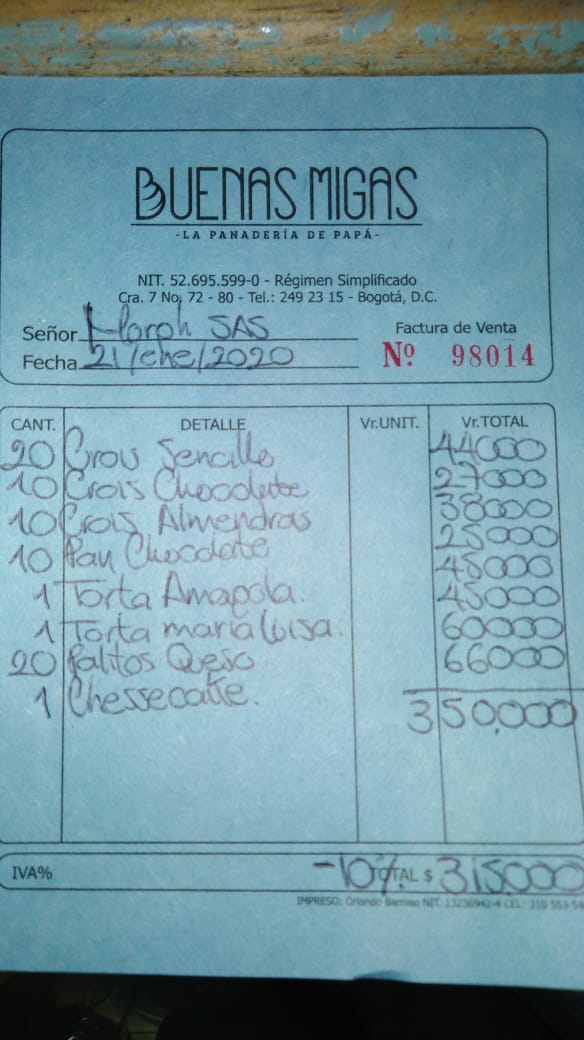 BUENAS MIGAS
-LA PANADERÍA DE PAPÁ-
NIT. 52.695.599-0 - Régimen Simplificado
Cra. 7 No. 72 - 80 - Tel.: 249 23 15 - Bogotá, D.C.
Señor SAS
Factura de Venta
Fecha 21/ene/2020
Nº 98014
CANT. DETALLE Vr.UNIT. Vr.TOTAL
20 Crois Sencillo 44000
10 Crois Chocolate 27000
10 Crois Almendras 38000
10 Pan Chocolate 25000
1 Torta Amapola. 45000
1 Torta maría luisa. 45000
20 Palitos Queso 60000
1 Chessecake. 66000
350,000
IVA% -10% TOTAL $ 315000
IMPRESO: Orlando Barroso NIT. 13236942-4 CEL: 310 553 54